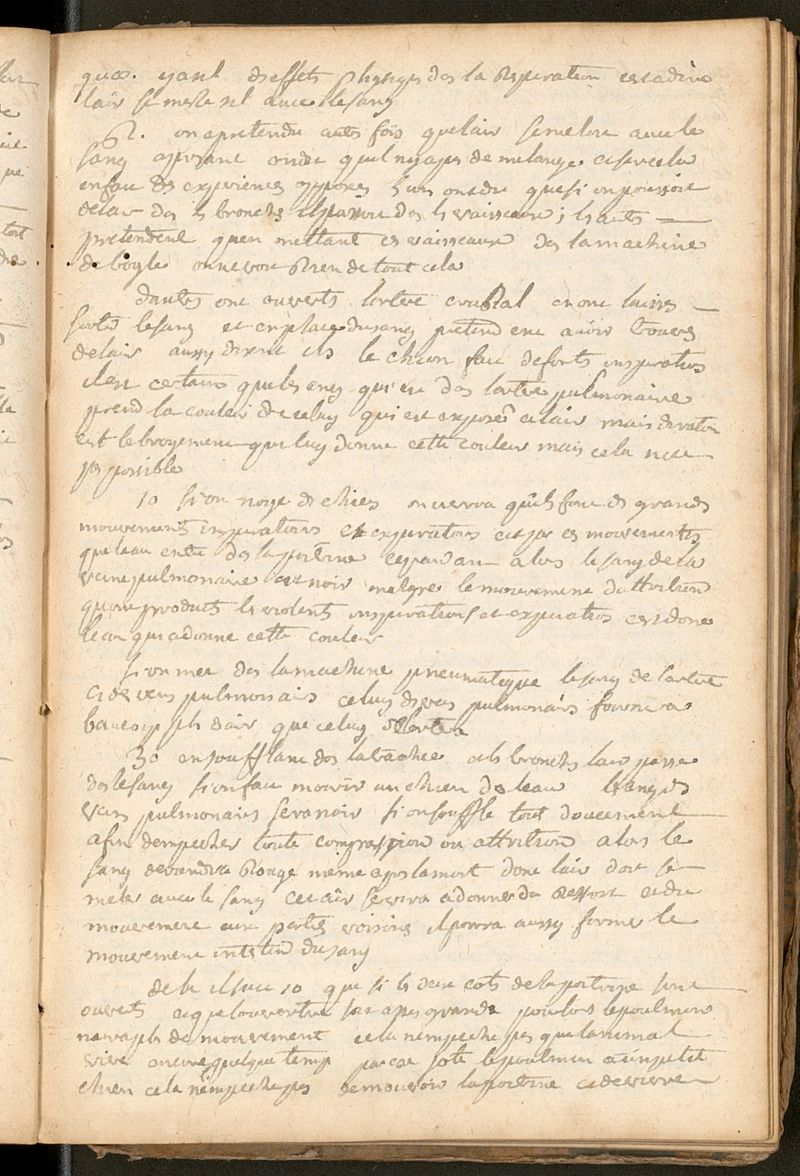 quæs. yant des effets physiques dos la Respiration cestadire
lair se mesle til avec le sang
R. on apretendu autrefois quelair semeloit avec le
sang apresant ondit quil nyapas de melange cesrcela
enfait des experiences opposes luns ontdit quesi onpoussoit
delair dos ls bronches ilpassoit dos ls vaisseaux; ls auts
pretendent quen mettant cs vaisseaux dos lamachine
de boyle onnevoit Rien de tout cela
dautes ont ouverts lartere crural enont laisses
sortir lesang et enplace dusang pretend ent avoir trouves
delair aussy disent ils le chien fait deforts inspiratios
ilest certains quelesang qui est dos lartere pulmonaire
prend la couleur de celuy qui est exposé alair mais
est lebroyement que luy donne cette couleur mais cela nest
ps possible
10 si on noye ds chies onverra quils font ds grands
mouvements inspiratoires et expiratoires cest par cs mouvements
queleau entre dos lapoitrine cependan alors lesang dela
veine pulmonaire est noir malgre le mouvement dattrition
quont produits ls violents inspirations et expiratios cest donc
lair qui adonne cette couleur
sion met dos lamachine pneumatique lesang de lartere
et des vens pulmonairs celuy ds vens pulmonairs fournira
beaucoup pls dair que celuy
30 ensoufflant dos latrachee ols bronches lair passe
dos lesang sionfait mourir unchien ds leau lesang ds
vens pulmonairs seranoir sionsouffle tout doucement
afin dempecher toute compression ou attrition alors le
sang deviendra Rouge même apres lamort donc lair doit se
meler avec le sang cet air servira adonner du Ressort et du
mouvement aux parties voisines ilpourra aussy former le
mouvement intestin dusang
dela ilsuit 10 que si ls deux cots delapoitrine sont
ouverts et quelouverture soit asses grande pourlors lepoulmon
naurapls de mouvement cela nempeche ps quelanimal
vive encore quelque temp lepoulmon aunpetit
chien cela nempechepas demouvoir lapoitrine et devivre